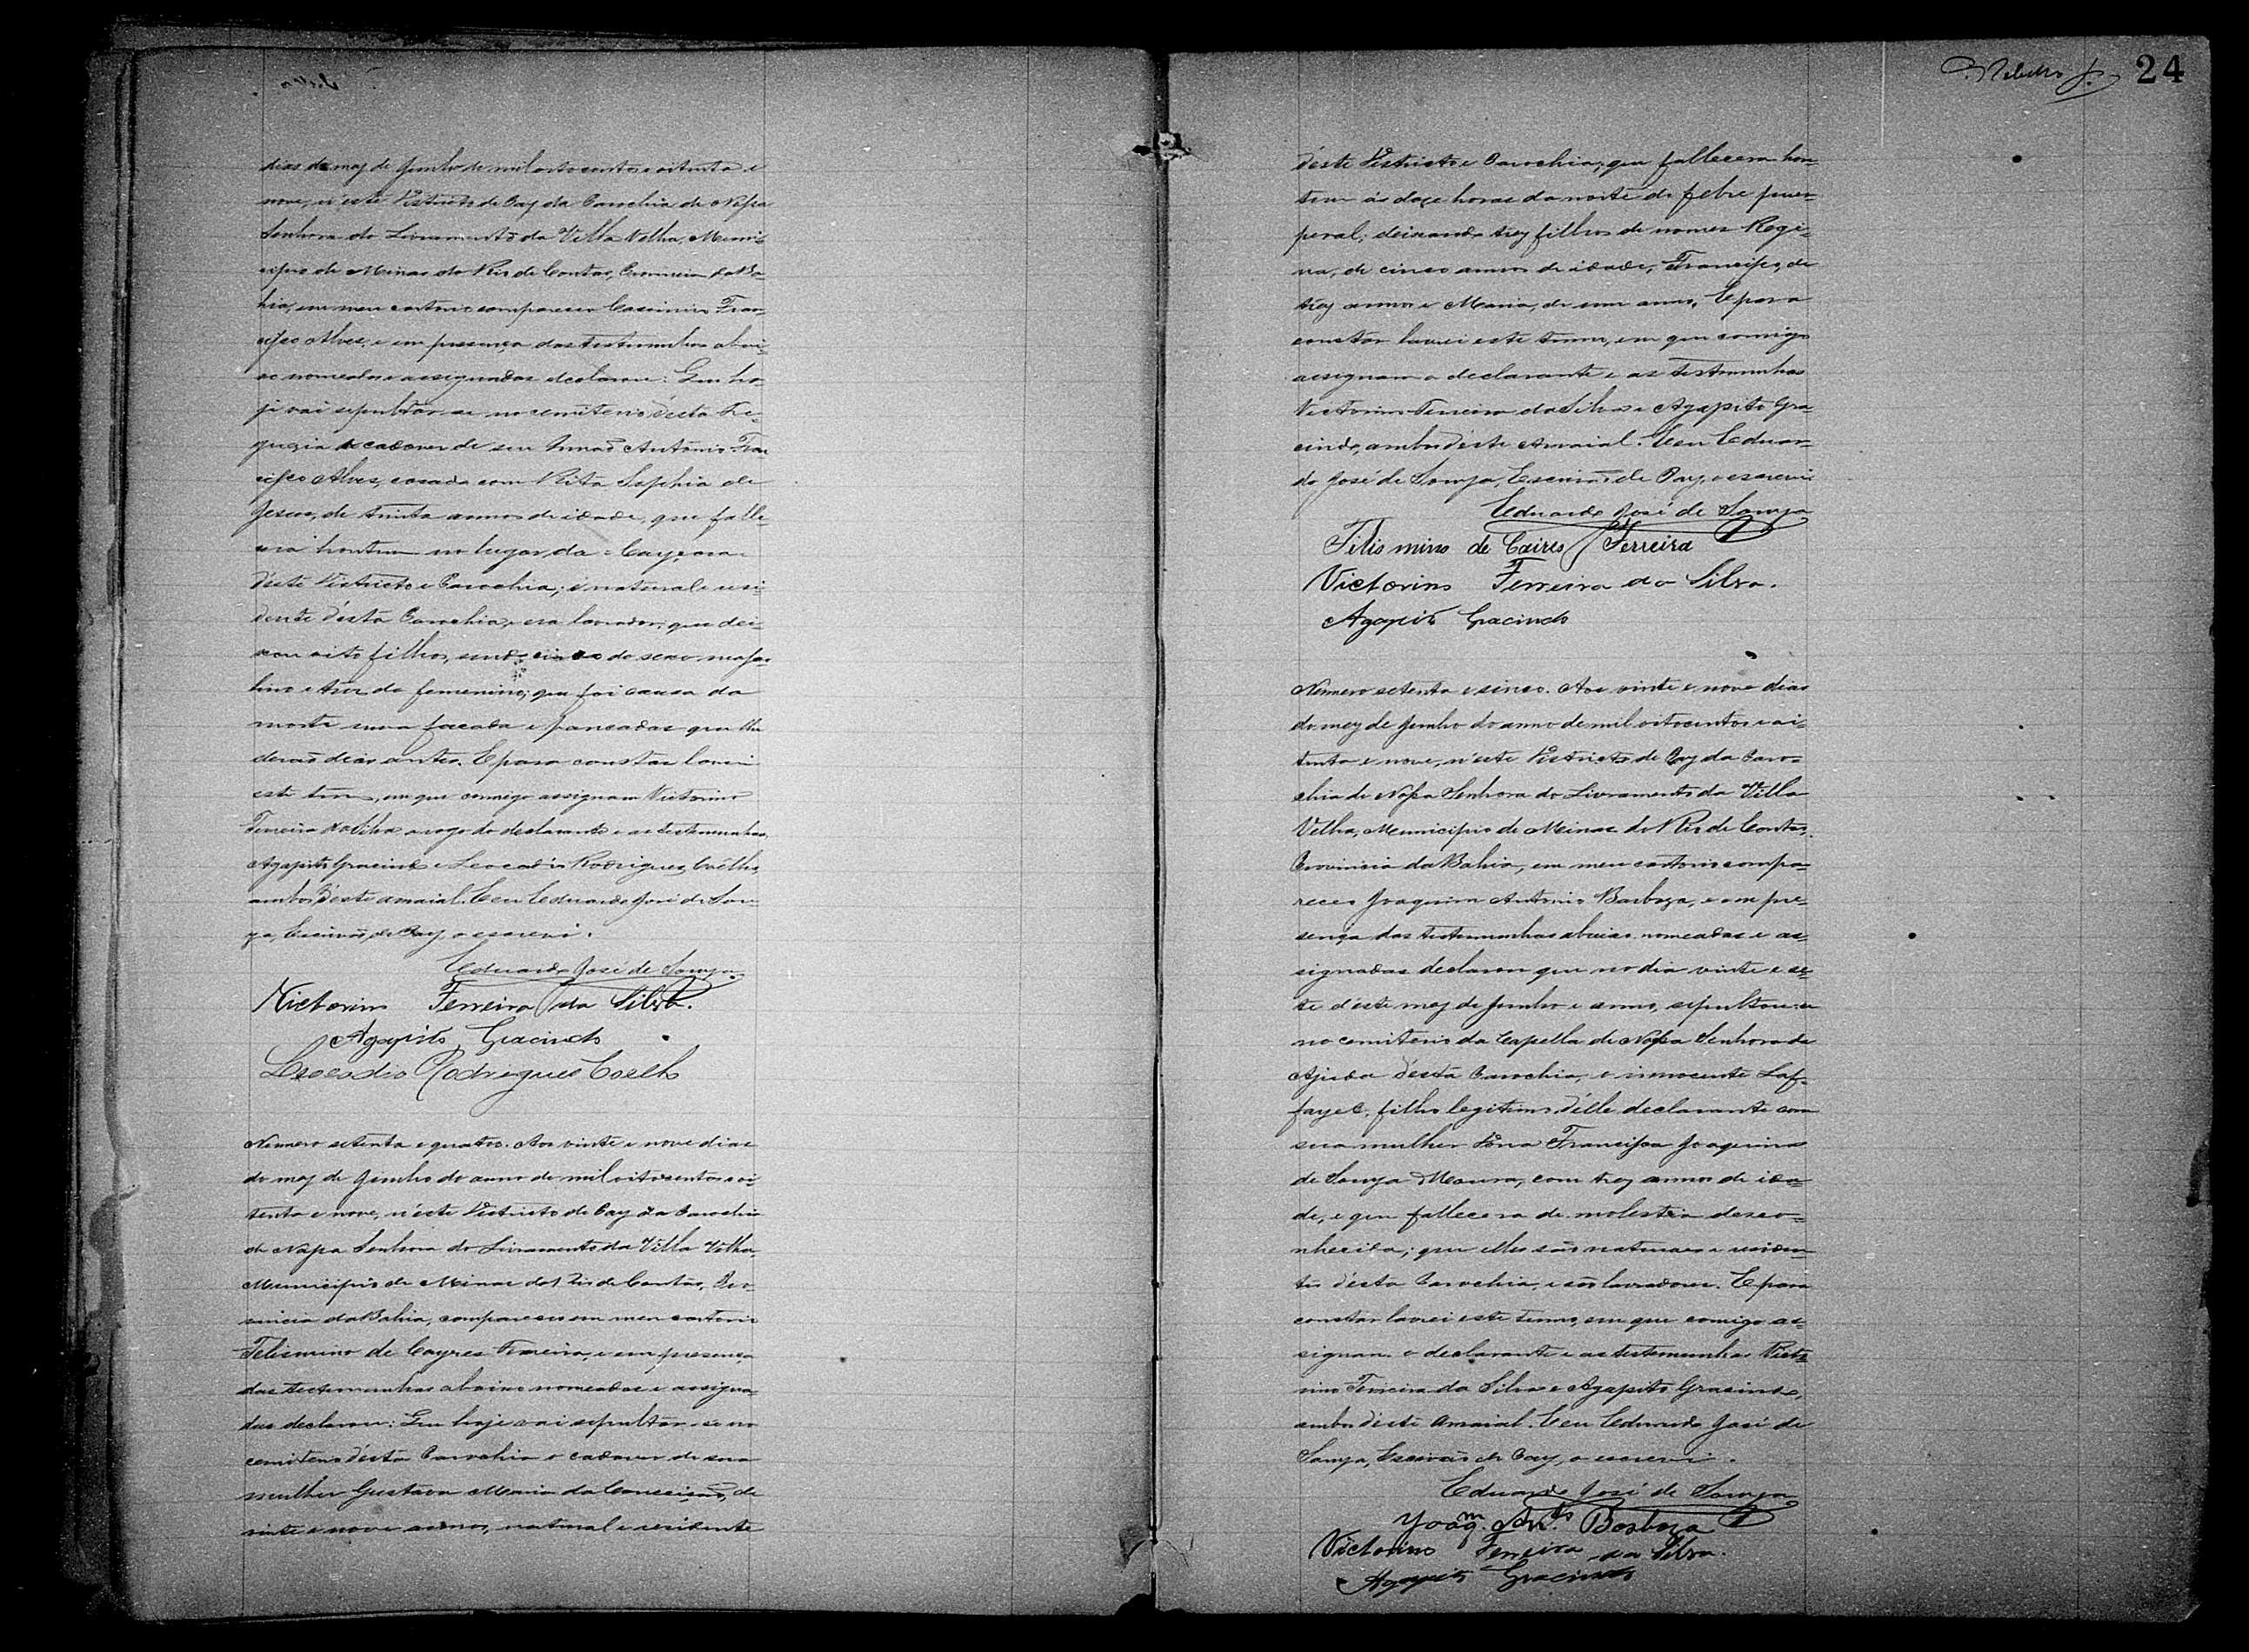 dias do mez de Junho de mil oitocentos e oitenta e
nove, n'este Districto de Paz da Parochia de Nossa
Senhora do Livramento da Villa Velha, Muni-
cipio de Minas do Rio de Contas, Provincia da Ba-
hia, em meu cartorio compareceo Cassimiro Fran-
cisco Alves, e em presença das testemunhas abai-
xo nomeadas e assignadas declarou: Que ho-
je vai sepultar-se no cemiterio d'esta Fre-
guezia o cadaver de seu Irmaõ Antonio Fran
cisco Alves, casado com Rita Sophia de
Jesus, de trinta annos de idade, que falle-
ceu hontem no lugar da
d'este Districto e Parochia; é natural e resi-
dente d'esta Parochia, era lavrador, que dei-
xou oito filhos, sendo cinco do sexo mascu-
lino e tres do femenino; que foi causa da
morte uma facada e pancadas que lhe
deraõ dias antes. E para constar lavrei
este termo, em que commigo assignam Victorino
Ferreira da Silva a rogo do declarante e as testemunhas
Agapito Gracindo e Leocadio Rodrigues Coêlho,
ambos d'este arraial. E eu Eduardo José de Sou-
za, Escrivaõ de Paz o escrevi.
Eduardo José de Souza
Victorino Ferreira da Silva.
Agapito Gracindo
Leocadio Rodrigues Coelho
Numero setenta e quatro. Aos vinte e nove dias
do mez de Junho do anno de mil oitocentos e oi-
tenta e nove, n'este Districto de Paz da Parochia
de Nossa Senhora do Livramento da Villa Velha,
Municipio de Minas do Rio de Contas, Pro-
vincia da Bahia, compareceo em meu cartorio
Felismino de Cayres Ferreira, e em presença
das testemunhas abaixo nomeadas e assigna-
das declarou: Que hoje vai sepultar-se no
cemiterio d'esta Parochia o cadaver de sua
mulher Gustava Maria da Conceiçaõ, de
vinte e nove annos, natural e residente
24
d'este Districto e Parochia, que fallecera hon-
tem ás doze horas da noite de febre puer-
peral; deixando trez filhos de nomes Regi-
na, de cinco annos de idade, Francisco, de
trez annos e Maria, de um anno. E para
constar lavrei este termo, em que comigo
assignam o declarante e as testemunhas
Victorino Ferreira da Silva e Agapito Gra-
cindo, ambos d'este Arraial. E eu Eduar-
do José de Souza, Escrivaõ de Paz, o escrevi
Eduardo José de Souza
Felismino de Caires Ferreira
Victorino Ferreira da Silva.
Agapito Gracindo
Numero setenta e sinco. Aos vinte e nove dias
do mez de Junho do anno de mil oitocentos e oi-
tenta e nove, n'este Districto de Paz da Paro-
chia de Nossa Senhora do Livramento da Villa
Velha, Municipio de Minas do Rio de Contas,
Provincia da Bahia, em meu cartorio compa-
receo Joaquim Antonio Barboza, e em pre-
sença das testemunhas abaixo nomeadas e as-
signadas declarou que no dia vinte e se-
te d'este mez de Junho e anno, sepultou-se
no cemiterio da Capella de Nossa Senhora da
Ajuda d'esta Parochia, o innocente Laf-
fayet, filho legitimo d'elle declarante com
sua mulher Dona Francisca Joaquina
de Souza Moura, com trez annos de ida-
de, e que fallecera de molestia desco-
nhecida; que elles saõ naturaes e residen-
tes d'esta Parochia, e saõ lavradores. E para
constar lavrei este termo, em que comigo as-
signam o declarante e as testemunhas Victo
rino Ferreira da Silva e Agapito Gracindo,
ambos d'este Arraial. E eu Eduardo José de
Souza, Escrivaõ de Paz, o escrevi.
Eduardo José de Souza
Joaqm. Anto. Barboza
Victorino Ferreira da Silva.
Agapito Gracindo